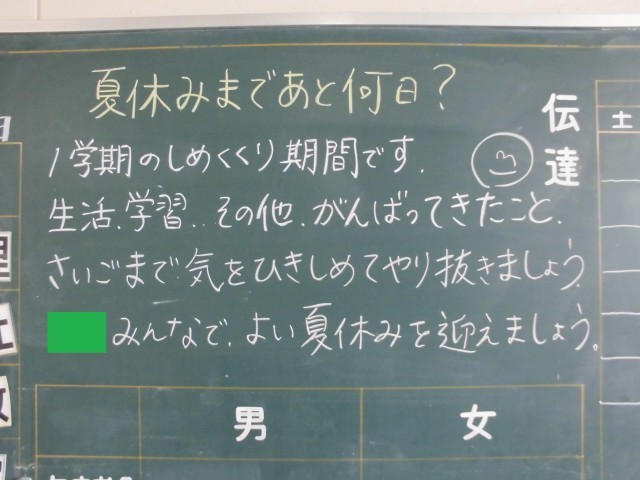 夏休みまであと何日？
1学期のしめくくり期間です.
生活.学習..その他.がんばってきたこと.
さいごまで気をひきしめてやり抜きましょう.
みんなで.よい夏休みを迎えましょう。
伝達
土
男 女